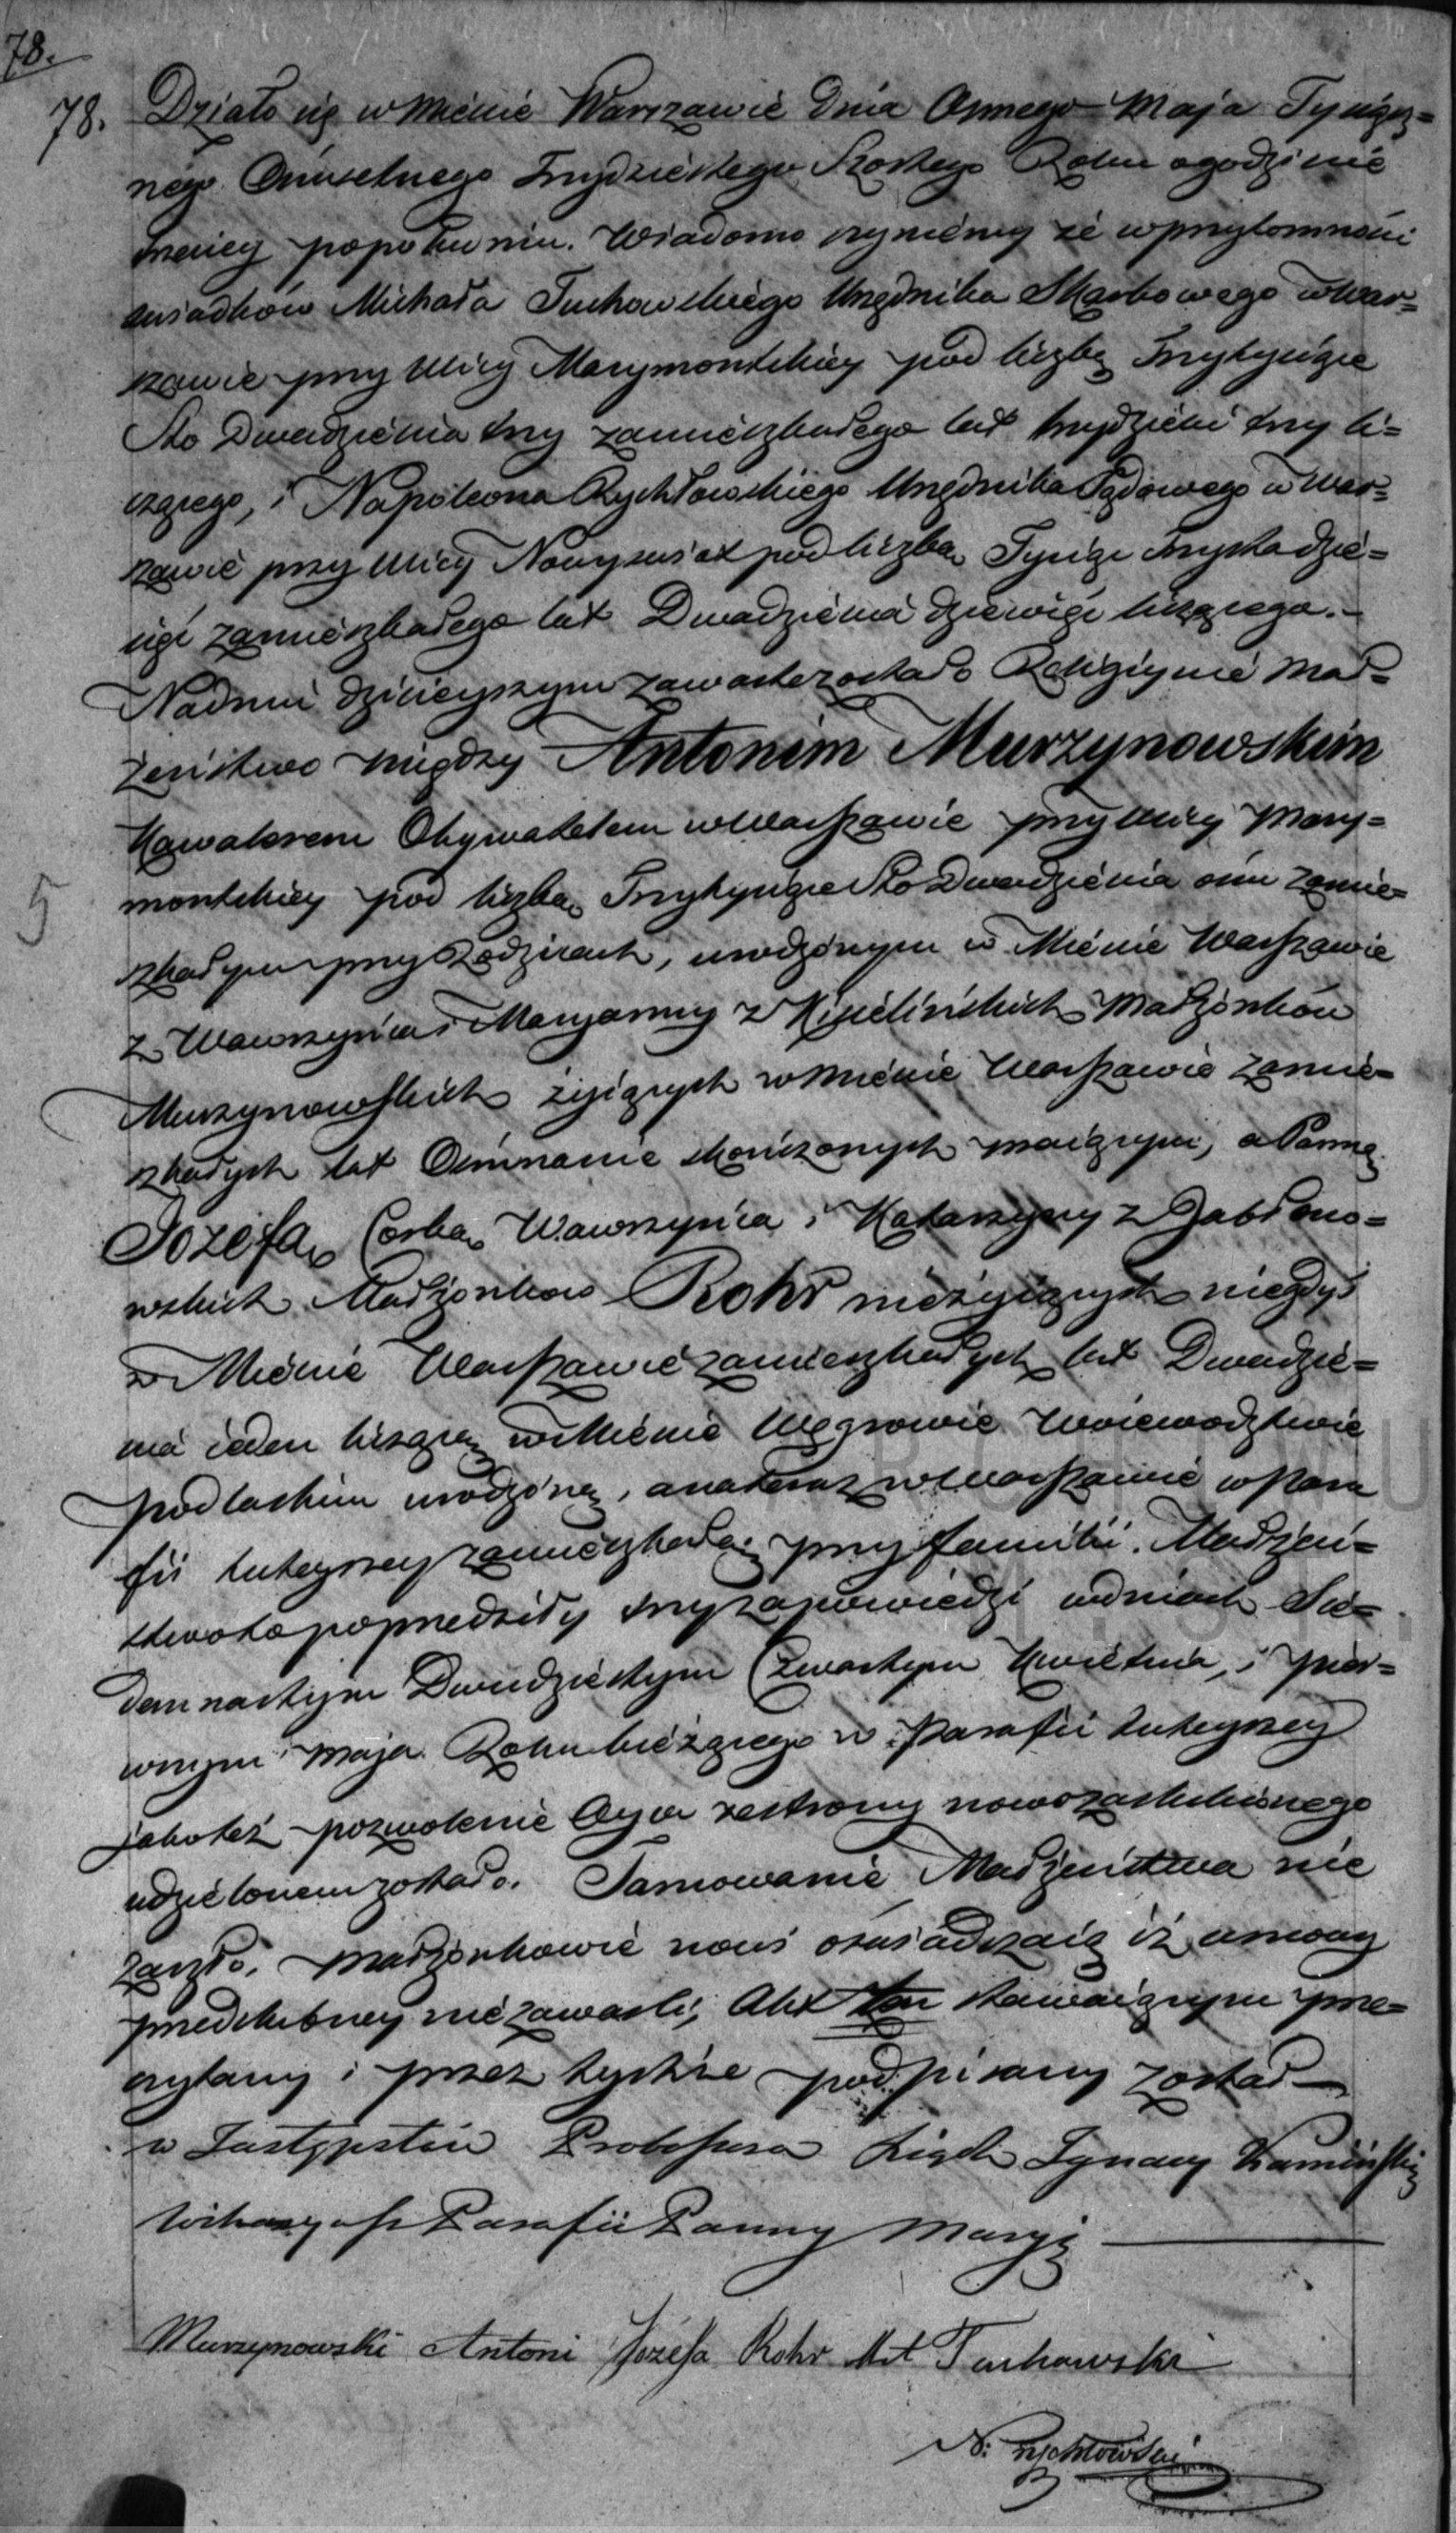 78.
78. Działo się w Mieście Warszawie dnia Osmego Maja Tysiącz=
nego Ośmsetnego Trzydziestego Szostego Roku o godzinie
trzeciey popołudniu. Wiadomo czyniemy że w przytomności
świadków Michała Tuchowskiego Urzędnika Skarbowego w War=
szawie przy Ulicy Marymontskiey pod liczbą Trzytysiące
Sto Dwadzieścia trzy zamieszkałego lat trzydzieści trzy li=
czącego, i Napoleona Rychłowskiego Urzędnika Sądowego w War=
szawie przy Ulicy Nowyświat pod liczbą Tysiąc trzysta dzie=
sięć zamieszkałego lat Dwadzieścia dziewięć liczącego.–
Na dniu dzisieyszym zawarte zostało Religiyne Mał=
żeństwo między Antonim Murzynowskim
Kawalerem Obywatelem w Warszawie przy Ulicy Mary=
montskiey pod liczbą Trzytysiące Sto Dwadzieścia ośm zamie=
szkałym przy Rodzicach, urodzonym w Mieście Warszawie
z Wawrzyńca i Maryanny z Kisielińskich Małżonków
Murzynowskich żyiących w Mieście Warszawie zamie=
szkałych lat Ośmnaście skończonych maiącym, a Panną
Jozefą Corką Wawrzyńca i Katarzyny z Jabłono=
wskich Małżonków Rohr nieżyiących niegdyś
w Mieście Warszawie zamieszkałych lat Dwadzie=
ścia ieden liczącą w Mieście Węgrowie Woiewodztwie
Podlaskim urodzoną, a na teraz w Warszawie w Para
fii tuteyszey zamieszkałą przy familii. Małżeń=
stwo to poprzedziły trzy zapowiedzi w dniach Sie=
demnastym Dwudziestym Czwartym Kwietnia, i pier=
wszym Maja Roku bieżącego w Parafii tuteyszey
jako też pozwolenie Oyca ze strony nowozaślubionego
udzielonem zostało. Tamowanie Małżeństwa nie
zaszło. Małżonkowie nowi oświadczaią iż umowy
przedślubney nie zawarli; Akt ten stawaiącym prze=
czytany i przez tychże podpisany został–
w Zastępstwie Proboszcza Xiądz Ignacy Kamiński
Wikaryusz Parafii Panny Maryi
Murzynowski Antoni Józefa Rohr Mt Tuchowski
N. Rychłowski
5